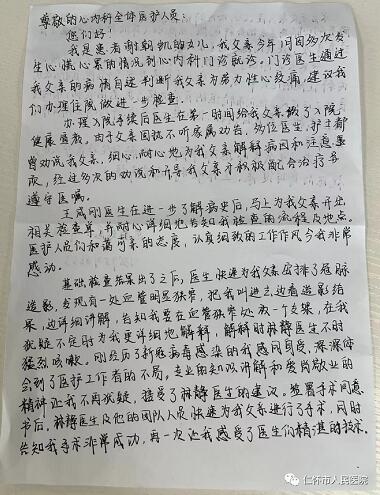 尊敬的心内科全体医护人员:
您们好!
我是患者谢朝凯的女儿,我父亲今年间因多次发
生心慌心累的情况到心内科门诊就诊。门诊医生通过
我父亲的病情自述判断我父亲为劳力性心绞痛,建议我
们办理住院做进一步检查。
办理入院手续后医生在第一时间给我父亲做了入院
健康宣教,由于父亲固执不听家属劝告,多位医生、护士都
曾劝说我父亲,细心、耐心地为我父亲解释病因和注意事
项,经过多次的劝说和开导我父亲才积极配合治疗并
遵守医嘱。
王成刚医生在进一步了解病史后,马上为我父亲开出
相关检查单,并耐心详细地告知我检查的流程及地点。
医护人员们和蔼可亲的态度,认真细致的工作作风令我非常
感动。
基础检查结果出了之后,医生快速为我父亲安排了冠脉
造影,发现有一处血管明显狭窄,把我叫进去边看造影结
果,边详细讲解,告知我要在血管狭窄处放一个支架,在我
犹疑不定时为我更详细地解释,解释时林静医生不时
猛烈咳嗽,刚经历了新冠病毒感染的我感同身受,深深体
会到了医护工作者的不易。专业的知识讲解和爱岗敬业的
精神让我不再犹疑,接受了林静医生的建议。签署手术同意
书后,林静医生及他的团队人员快速为我父亲进行了手术,同时
告知我手术非常成功,再一次让我感受了医生们精湛的技术。
仁怀市人民医院